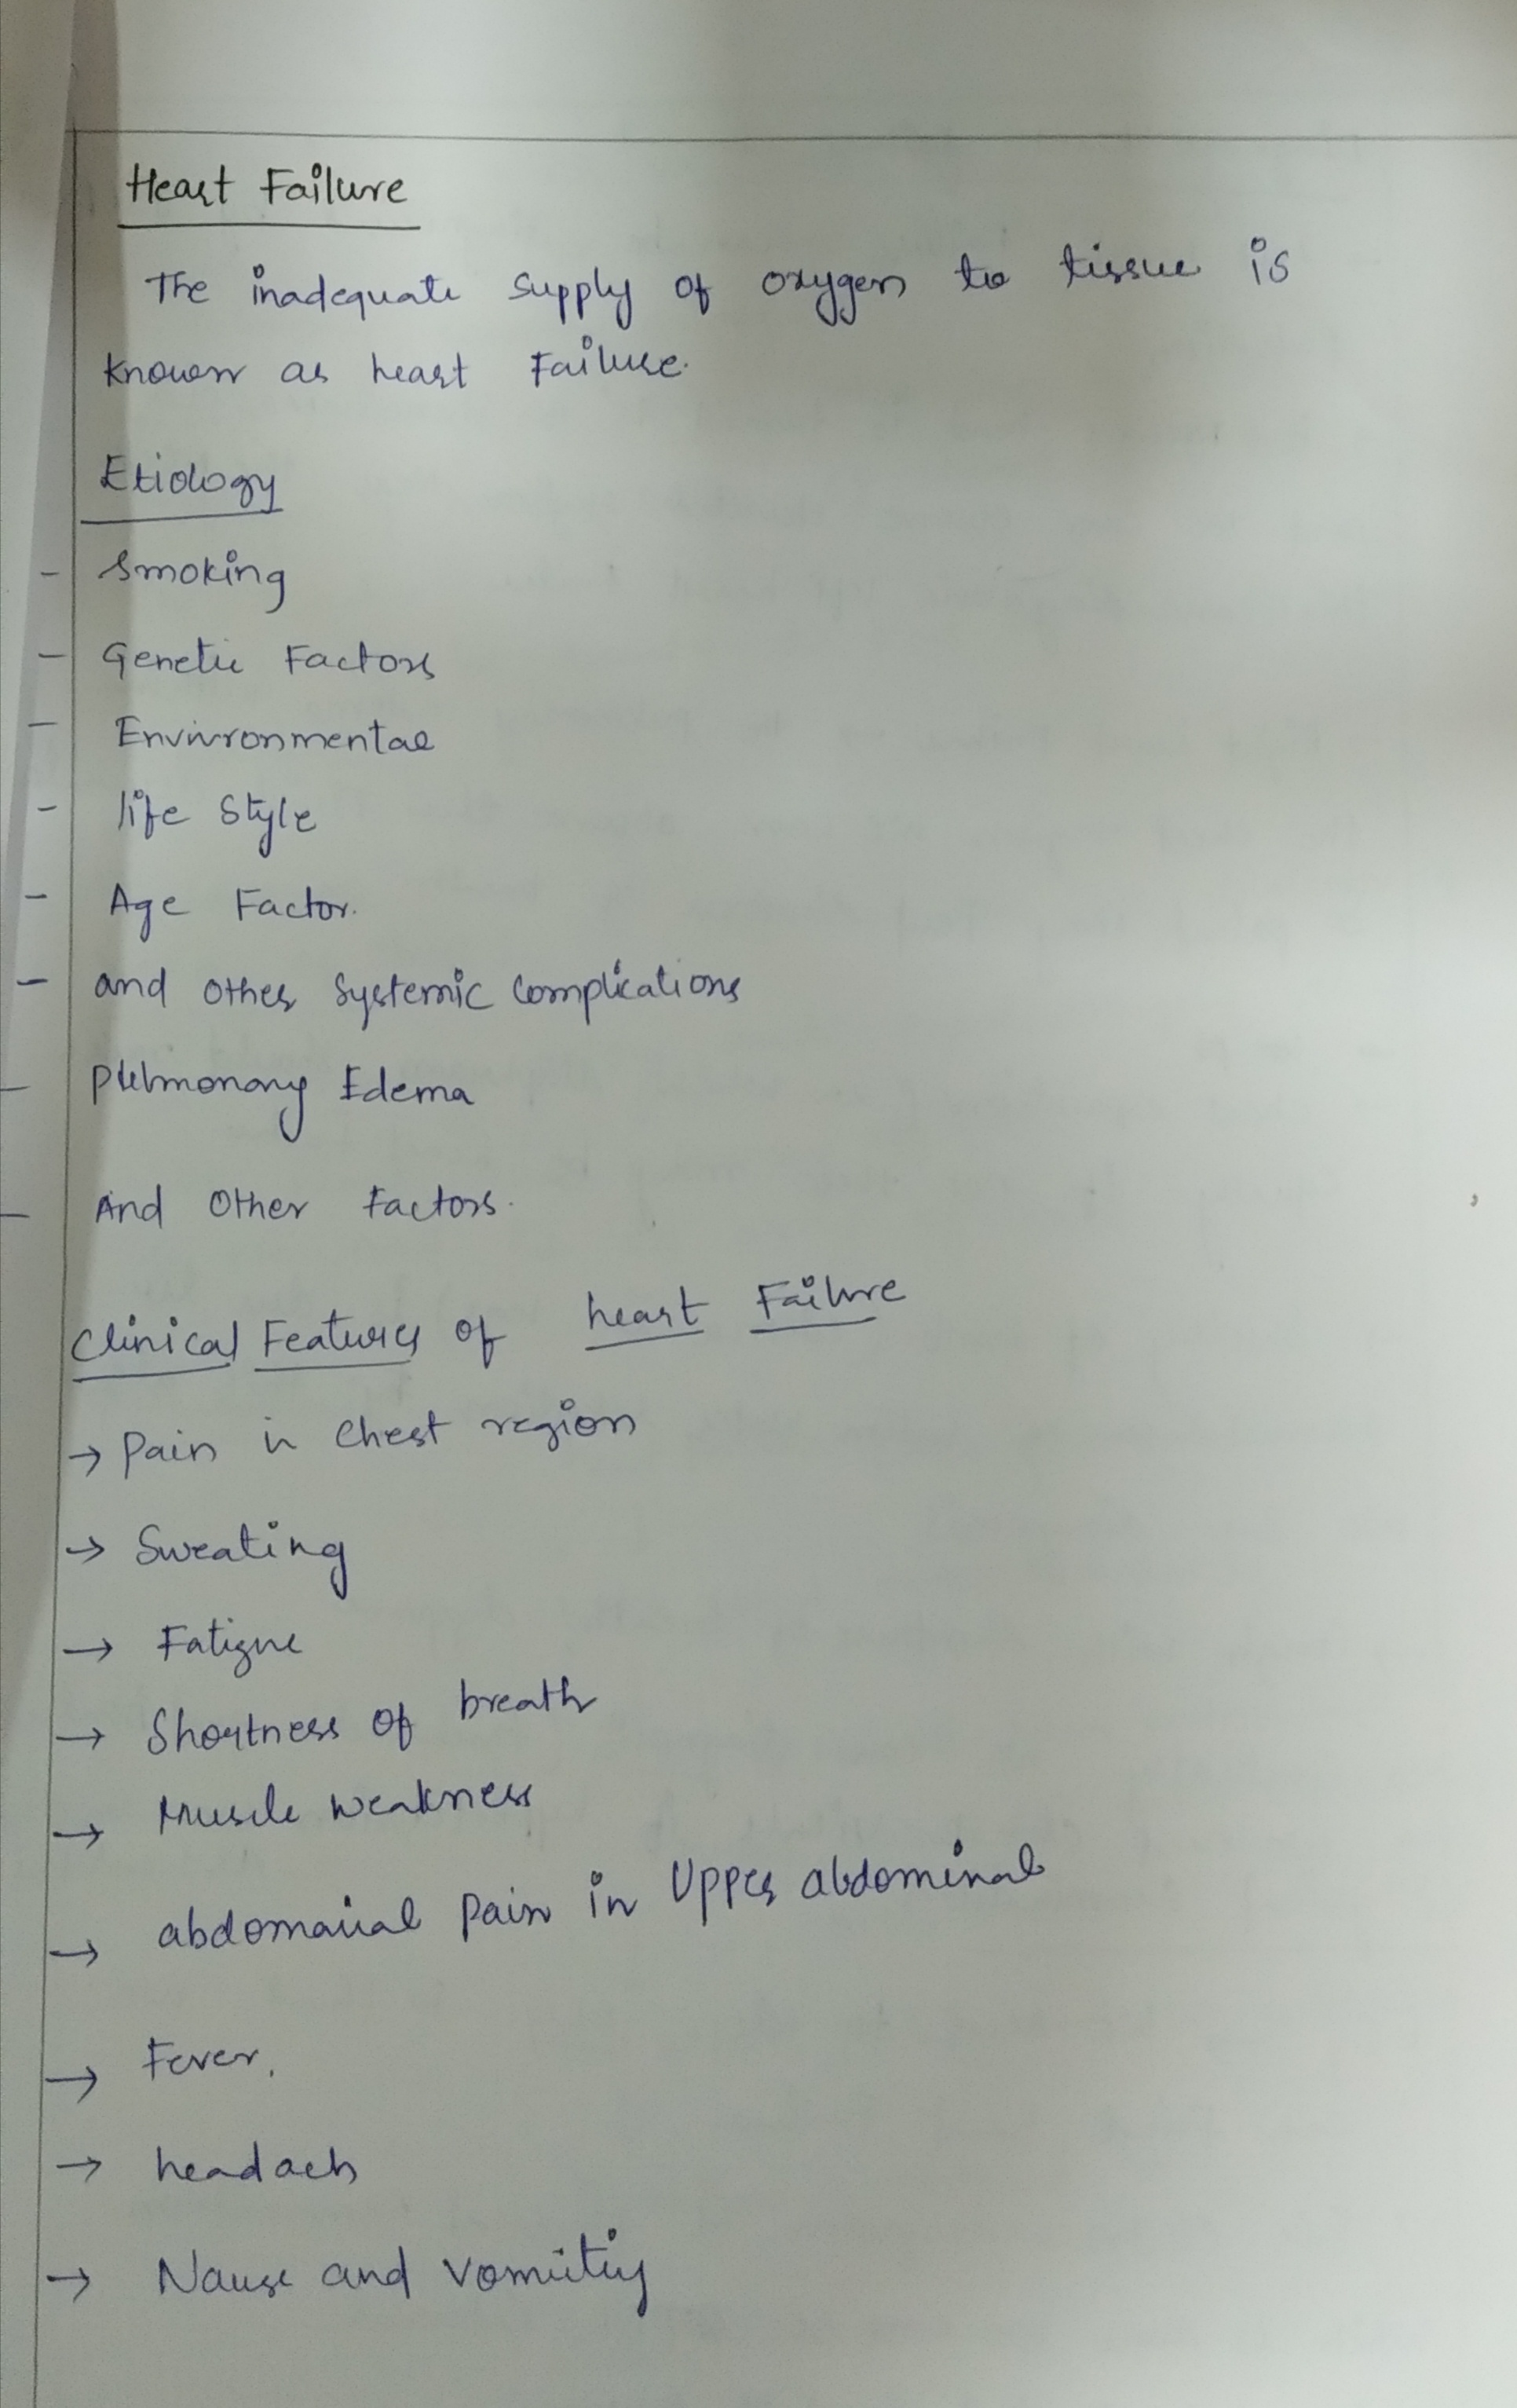 Heart Failure
The inadequate supply of oxygen to tissue is
known as heart Failure.
Etiology
- Smoking
- Genetic Factors
- Environmental
- life Style
- Age Factor.
- and other Systemic Complications
- Pulmonary Edema
- And Other Factors.
Clinical Features of heart Failure
→ Pain in Chest region
→ Sweating
→ Fatigue
→ Shortness of breath
→ Muscle weakness
→ abdomaial Pain in Upper abdominal
→ Fever.
→ headach
→ Nause and vomiting